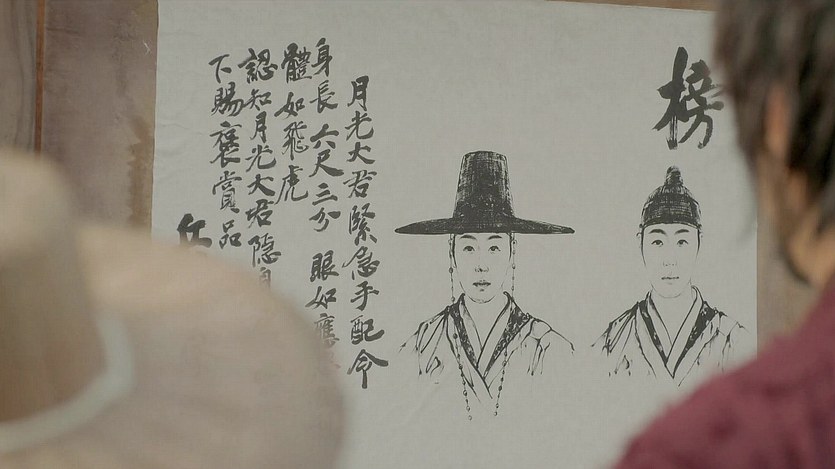 榜
月光大君緊急手配令
身長六尺三分 眼如鷹
體如飛虎
認知月光大君隠身
下賜褒賞品